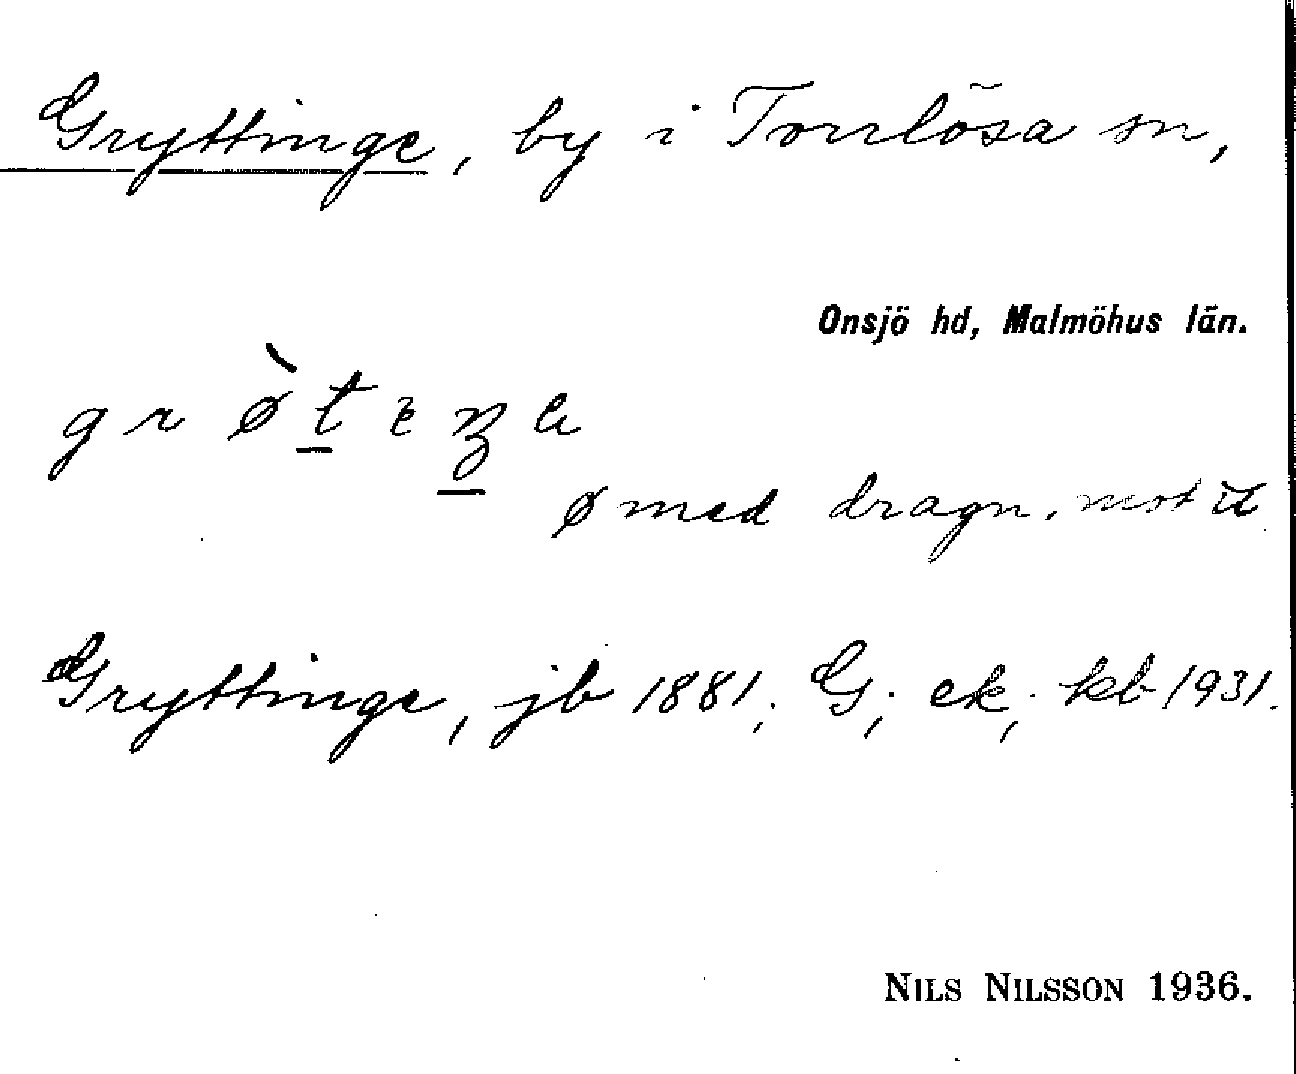 Gryttinge, by i Torrlösa sn,
Onsjö hd, Malmöhus län.
ø med dragn. mot
Gryttinge, jb 1881; G; ek; kb 1931.
NILS NILSSON 1936.